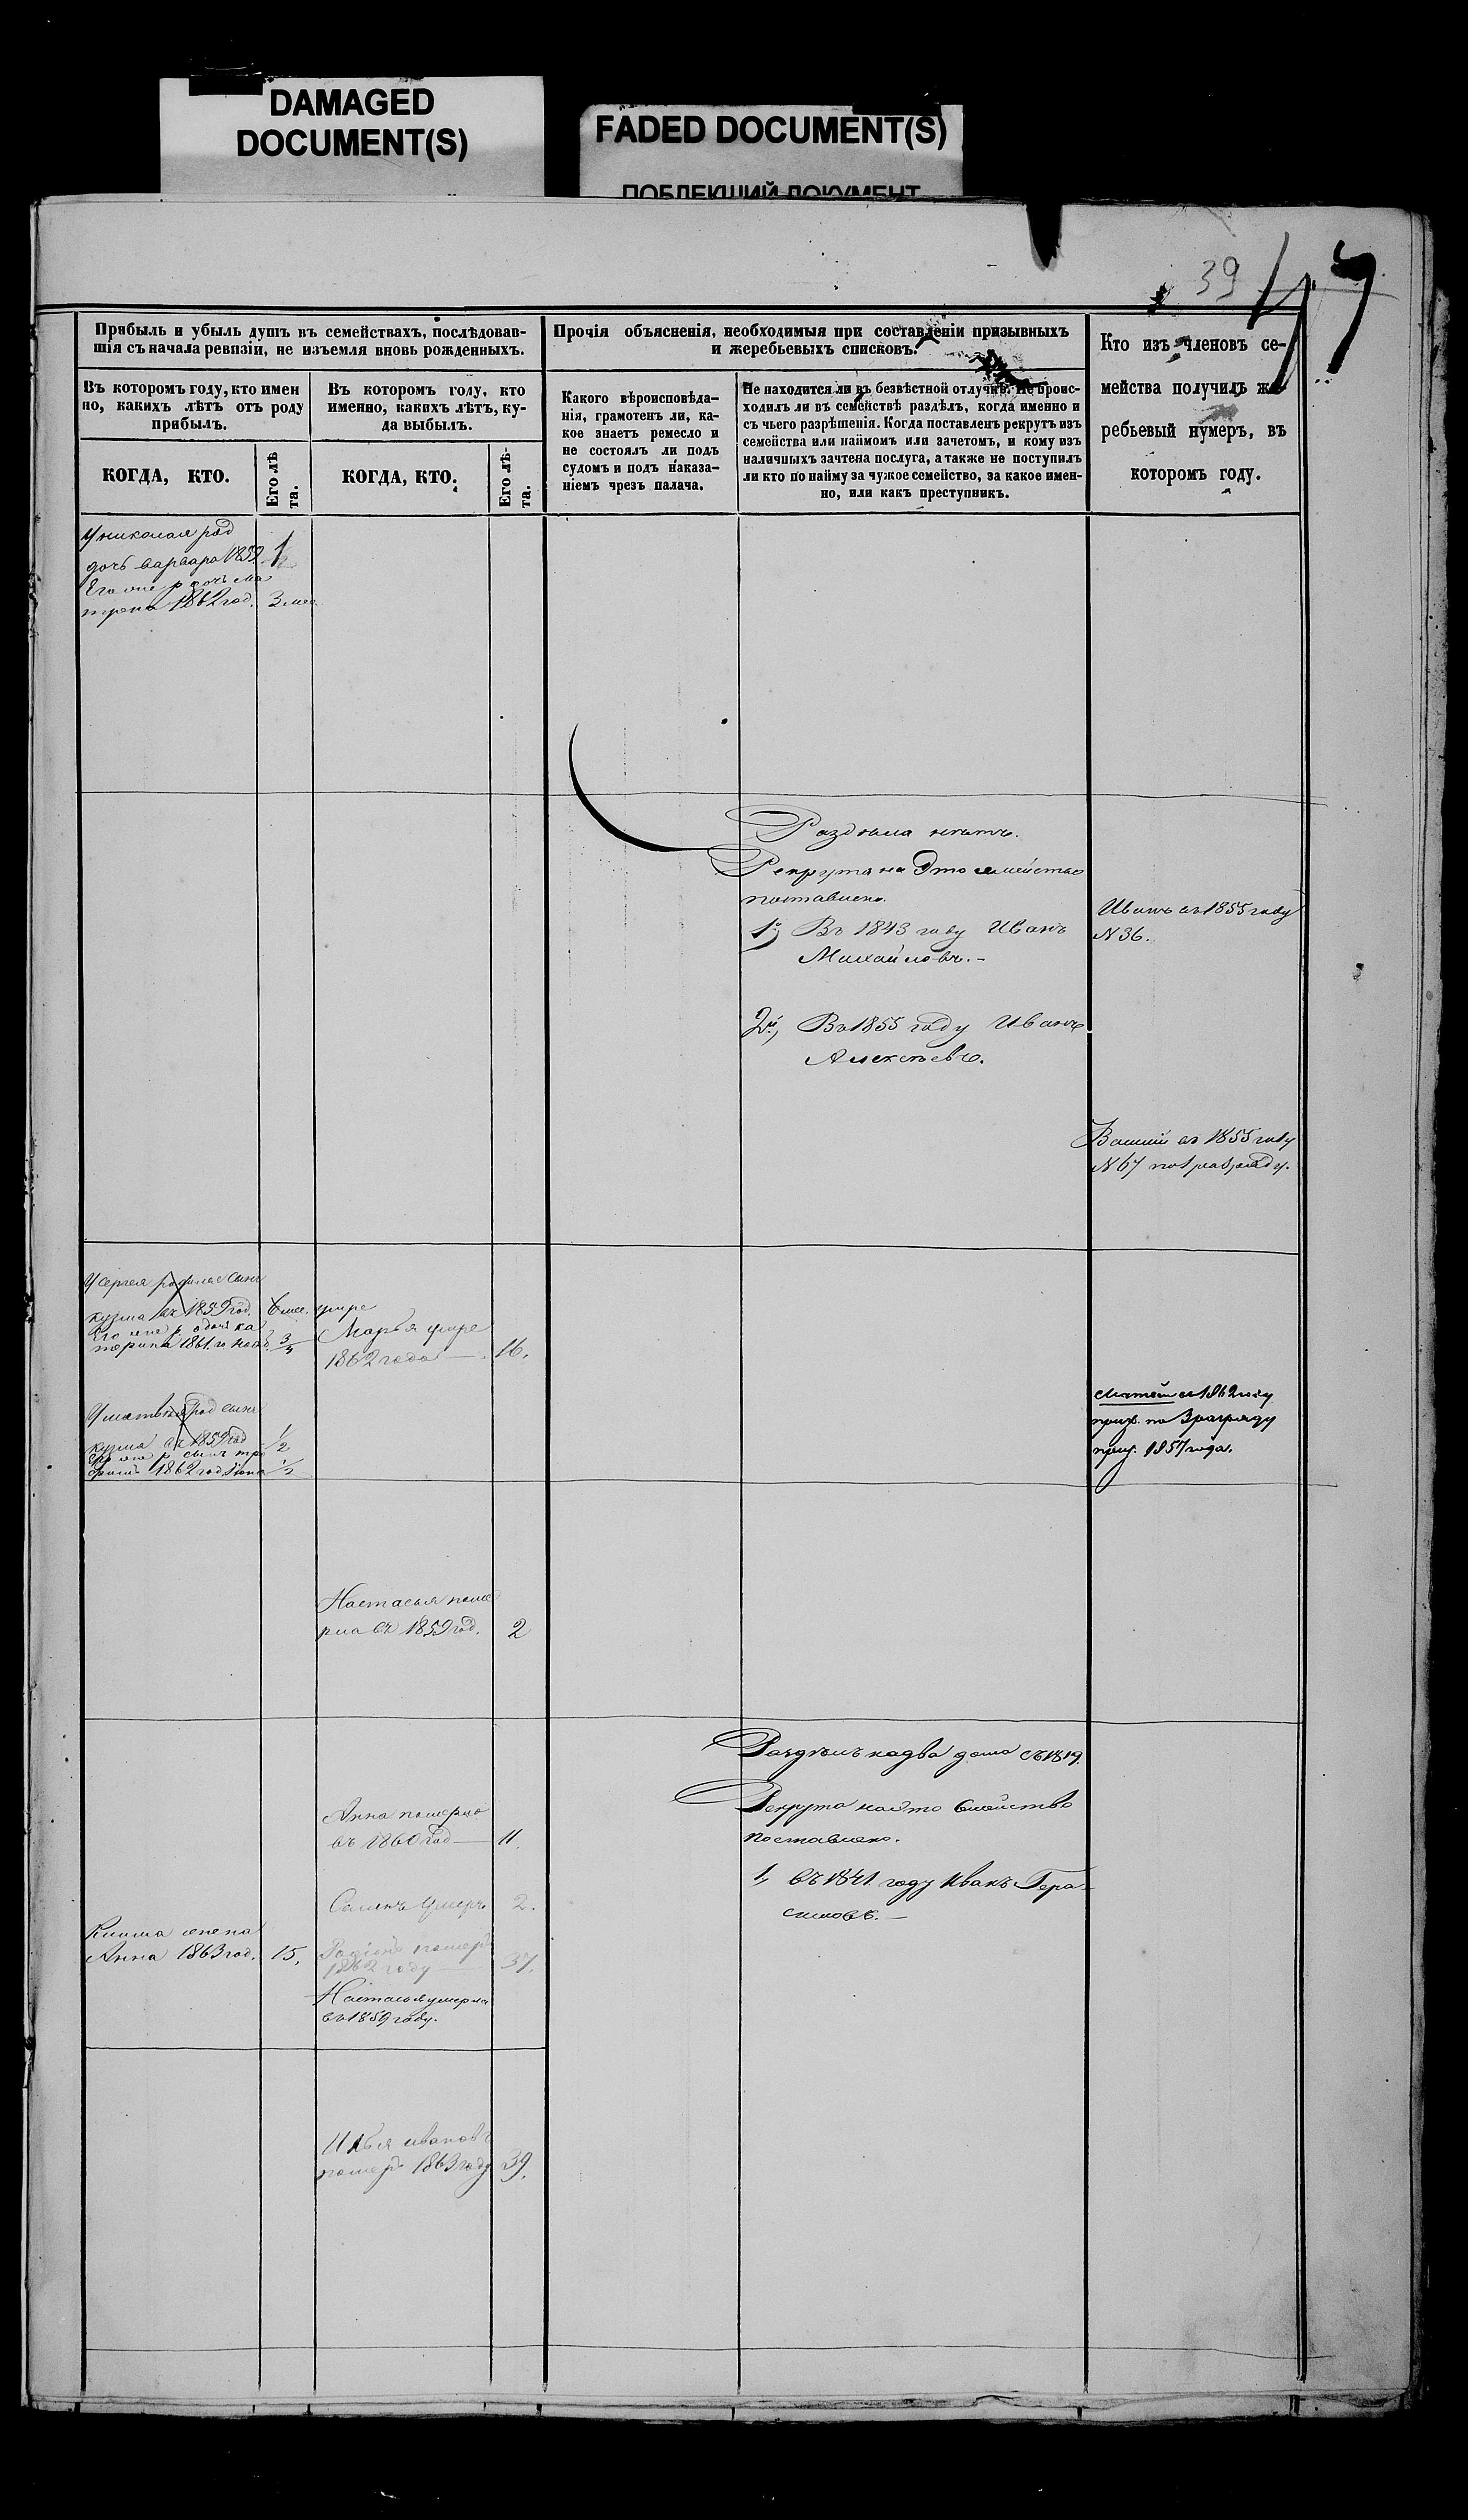 DAMAGED
DOCUMENT(S)
FADED DOCUMENT(S)
ПОБЛЕКШИЙ ДОКУМЕНТ
39
Прибыль и убыль душъ въ семействахъ, послѣдовав-
шія съ начала ревизіи, не изъемля вновь рожденныхъ.
Въ которомъ году, кто имен
но, какихъ лѣтъ отъ роду
прибылъ.
КОГДА, КТО.
Его лѣ
та.
Въ которомъ году, кто
именно, какихъ лѣтъ, ку-
да выбылъ.
КОГДА, КТО.
Его лѣ-
та.
Прочія объясненія, необходимыя при составленіи призывныхъ
и жеребьевыхъ списковъ.
Какого вѣроисповѣда-
нія, грамотенъ ли, ка-
кое знаетъ ремесло и
не состоялъ ли подъ
судомъ и подъ наказа-
ніемъ чрезъ палача.
Не находится ли въ безвѣстной отлучкѣ. Не проис-
ходилъ ли въ семействѣ раздѣлъ, когда именно и
съ чьего разрѣшенія. Когда поставленъ рекрутъ изъ
семейства или наймомъ или зачетомъ, и кому изъ
наличныхъ зачтена послуга, а также не поступилъ
ли кто по найму за чужое семейство, за какое имен-
но, или какъ преступникъ.
Кто изъ членовъ се-
мейства получилъ же-
ребьевый нумеръ, въ
которомъ году.
У николая род
дочь варвара 1859 1
Его же р дочь Ма
трена 1862 год. 3 мес
Раздѣла нѣтъ.
Рекрута на Это семейство
поставлено.
1й Въ 1843 году Иванъ
Михайловъ. -
2й, Въ 1855 году Иванъ
Алексѣевъ.
Иванъ въ 1855 году
N 36.
въ 1855 году
N 67
У сергея родился сынъ
кузма въ 1859 год. 6 мес.
Его же р дочь ка
терина 1861. г
Марья умре
1862 года — 16.
У матвѣя род сынъ
кузма въ 1859 год 1/2
1862 год 1/2
Матвѣй въ 1862 году
приз. по 3 разряду
приз. 1857 года.
Настасья поме
рла въ 1859 год. 2
Раздѣлъ на два дома съ 1819.
Рекрута на это Семѣйство
поставлено.
1, въ 1841. году Иванъ Гера-
симовъ. —
Анна померла
въ 1860 год — 11.
Семенъ Умеръ 2.
жена
Анна 1863 год. 15,
померъ
1862 году — 37.
Настасья умерла
въ 1859 году.
Илья ивановъ
померъ 1863 году 39.